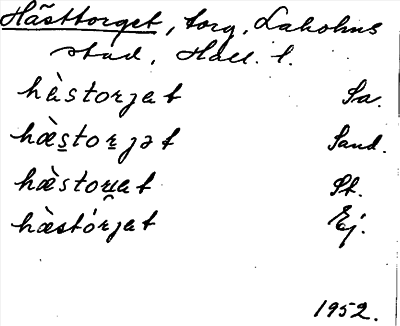 Hästtorget, torg. Laholms
stad, Hall. l.
hàstorjet Sa.
hæ̀s̲tor̲jət Sand.
hæ̀storu̯et St.
hæ̀stórjet Ej.
1952.